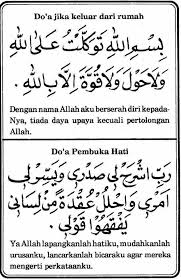 Do'a jika keluar dari rumah
بِسْمِ اللهِ تَوَكَّلْتُ عَلَى اللهِ
وَلَاحَوْلَ وَلَاقُوَّةَ اِلَّا بِاللهِ .
Dengan nama Allah aku berserah diri kepada-
Nya, tiada daya upaya kecuali pertolongan
Allah.
Do'a Pembuka Hati
رَبِّ اشْرَحْ لِى صَدْرِى وَيَسِّرْ لِى
اَمْرِى وَاحْلُلْ عُقْدَةً مِنْ لِسَانِى
يَفْقَهُوْا قَوْلِى .
Ya Allah lapangkanlah hatiku, mudahkanlah
urusanku, lancarkanlah bicaraku agar mereka
mengerti perkataanku.